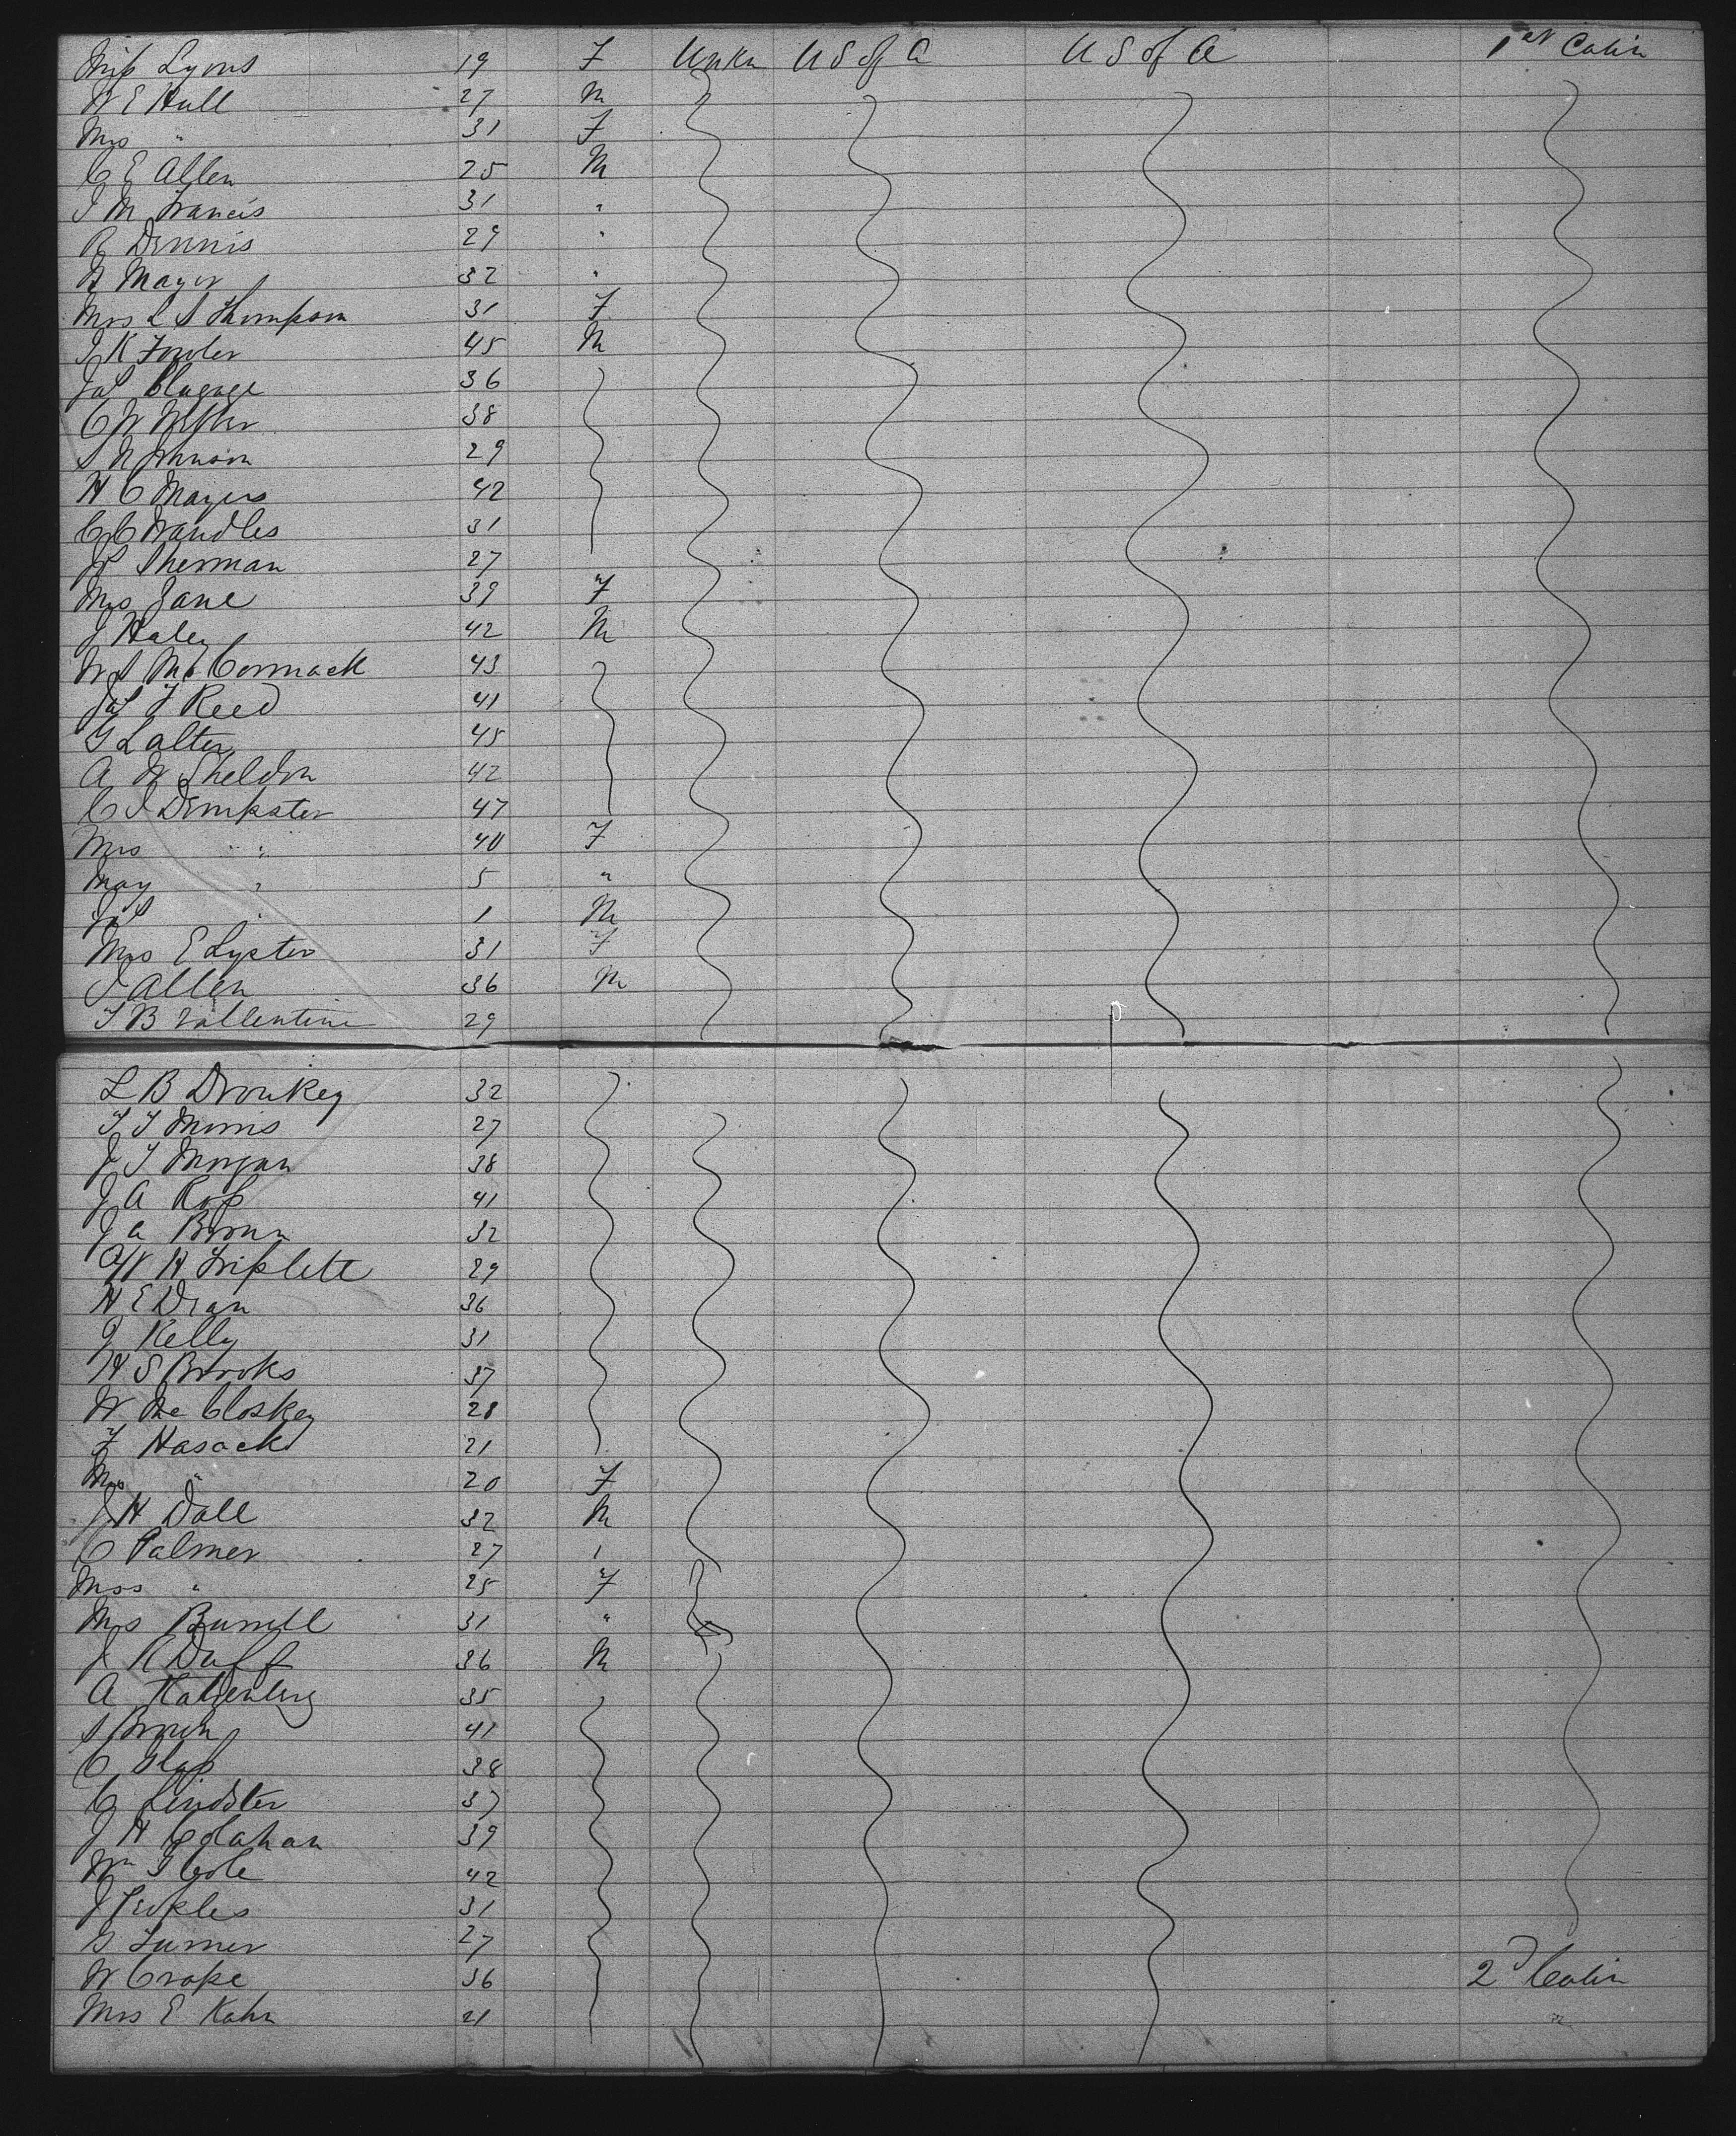 Miss Lyons 19 F Unkn U S of A U S of A 1st Cabin
W E Hull 27 M
Mrs " 31 F
C E Allen 25 M
J M Francis 31 "
R Dennis 29 "
Mayer 32 "
Mrs L S Thompson 31 F
J K Fowler 45 M
Jas 36
C W 38
S N Johnson 29
H C Mayers 42
C C Wandles 31
Js Sherman 27
Mrs Jane 39 F
J Haley 42 M
W S McCormack 43
Jas F Reed 41
G L alter 45
A W Sheldon 42
C I Dempster 47
Mrs " " 40 F
May " 5 "
Jas " 1 M
Mrs E Lyster 31 F
J Allen 36 M
T B Vallentine 29
L B Dronkey 32
T T Morris 27
J T Morgan 38
J A Ross 41
J A Brown 32
W H Triplett 29
H E Dean 36
J Kelly 31
H S Brooks 37
W Mc Closkey 28
F Hasack 21
Mrs " 20 F
J H Dall 32 M
C Palmer 27 "
Mrs " 25 F
Mrs Burrell 31 "
J R Duff 36 M
A Katzenberg 35
S Brown 41
C 38
C 37
J H Colahan 39
Wm T Cole 42
J Peckles 31
G Turner 27
W Crape 36 2d Cabin
Mrs E Kahn 21 "